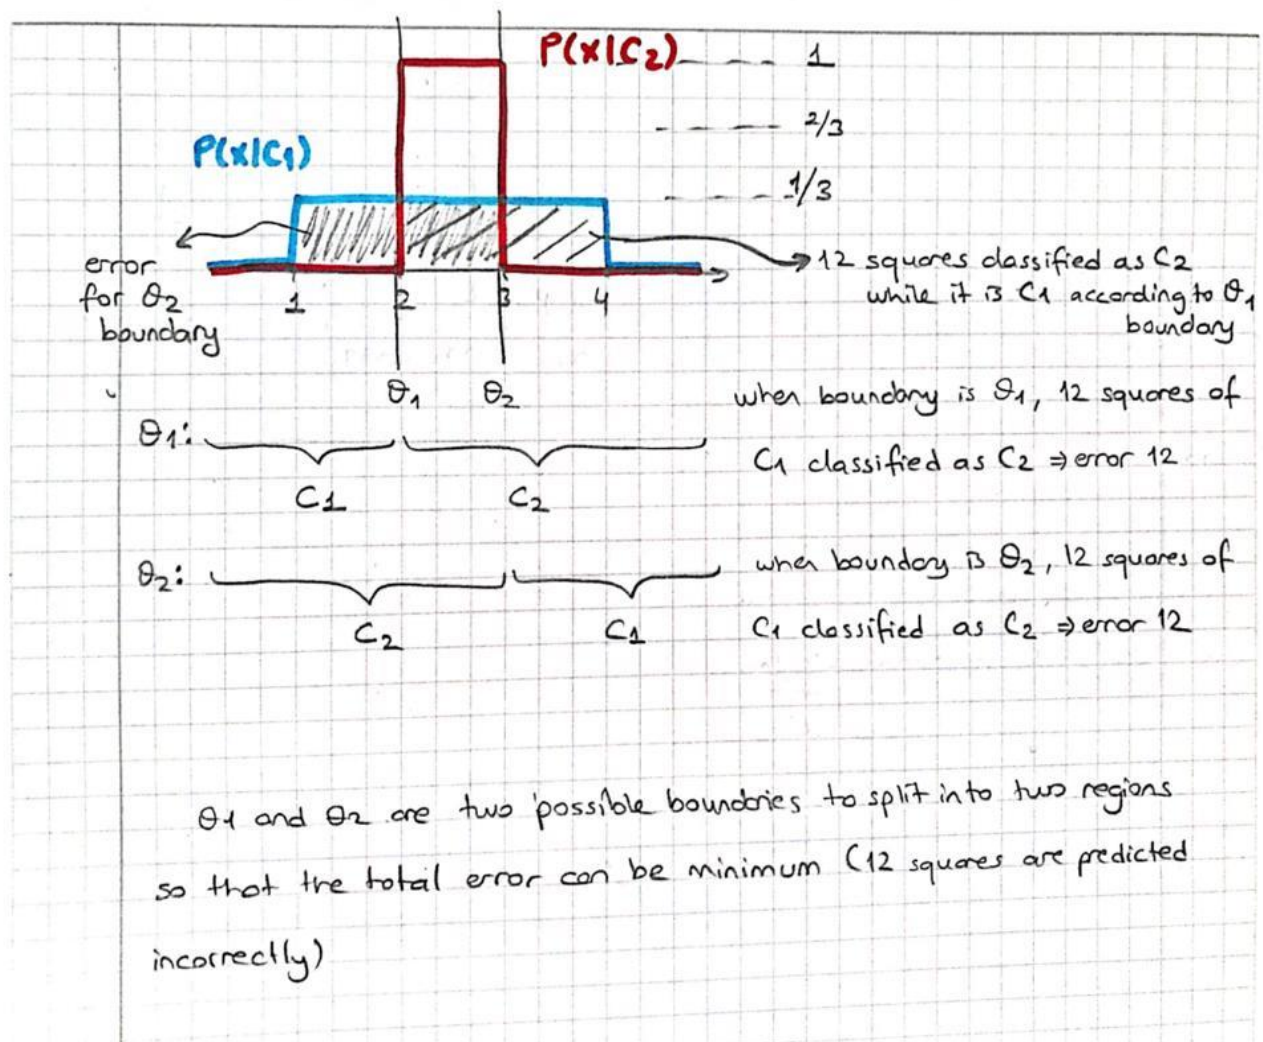 P(x|C2) 1
2/3
P(x|C1)
1/3
error
for θ2
boundary
1 2 3 4
12 squares classified as C2
while it is C1 according to θ1
boundary
θ1 θ2
when boundary is θ1, 12 squares of
C1 classified as C2 ⇒ error 12
θ1:
C1 C2
when boundary is θ2, 12 squares of
C1 classified as C2 ⇒ error 12
θ2:
C2 C1
θ1 and θ2 are two possible boundries to split into two regions
so that the total error can be minimum (12 squares are predicted
incorrectly)